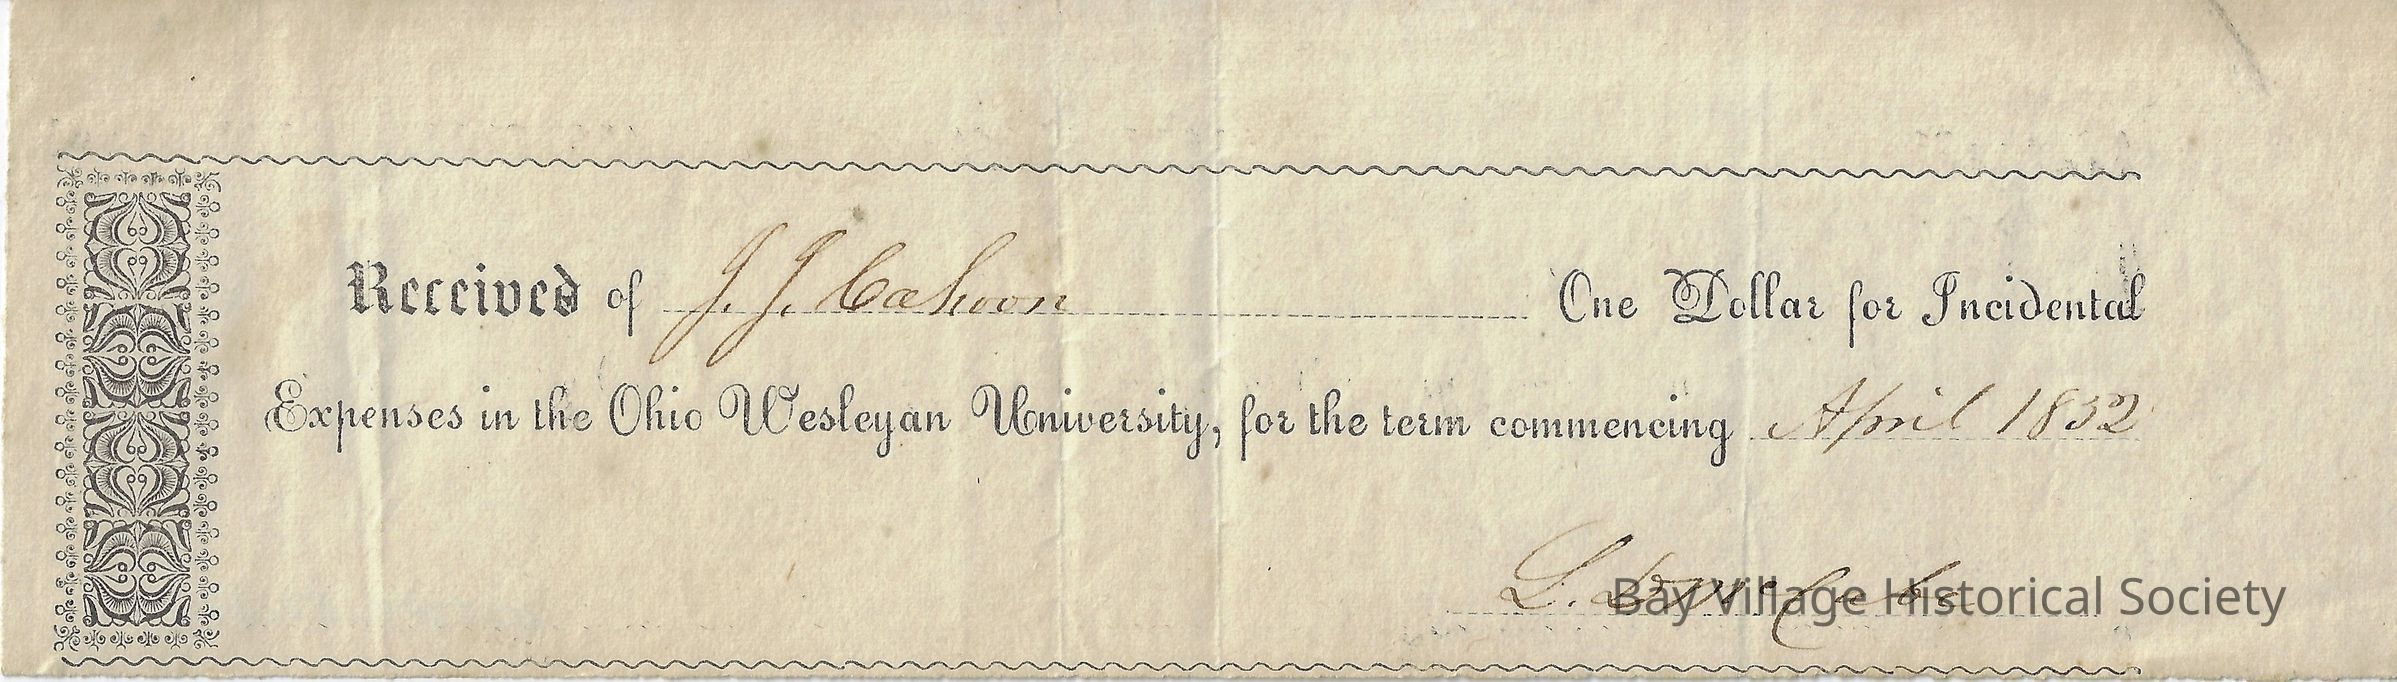 Received of J. J. Cahoon One Dollar for Incidental
Expenses in the Ohio Wesleyan University, for the term commencing April 1852
L. D. McCabe
Bay Village Historical Society